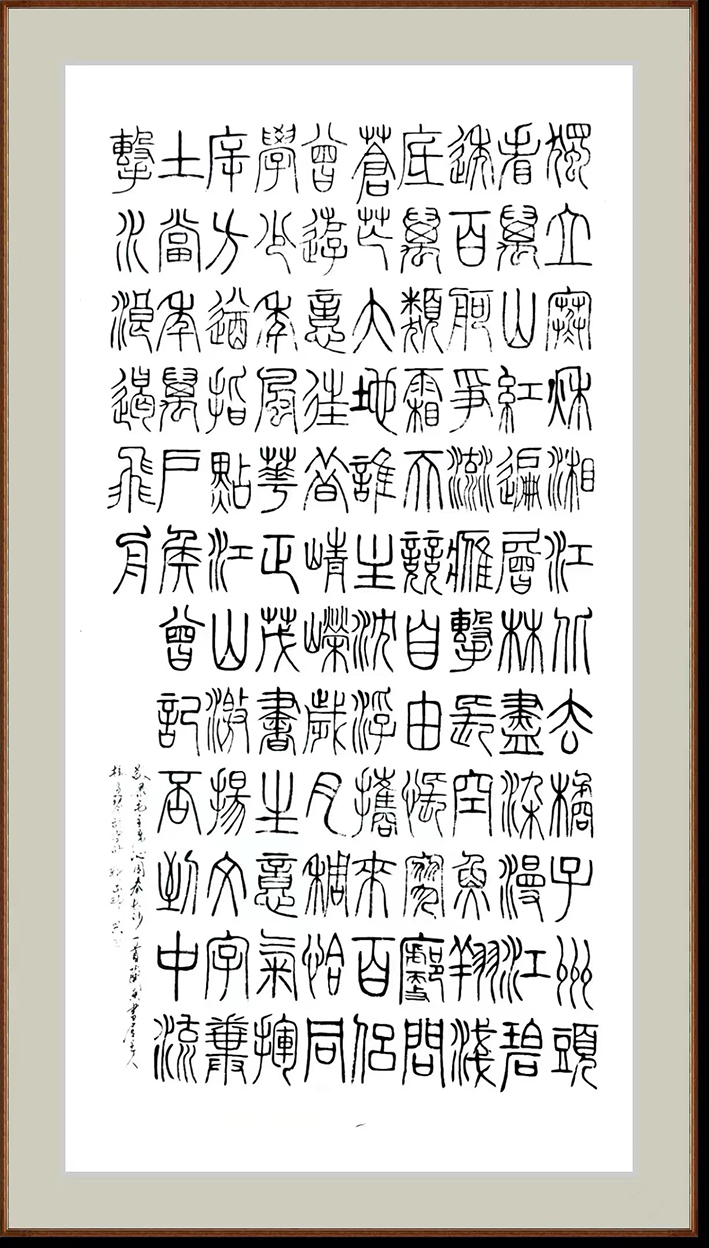 獨立寒秋湘江北去橘子州頭
看萬山紅遍層林盡染漫江碧
透百舸爭流鷹擊長空魚翔淺
底萬類霜天競自由悵寥廓問
蒼茫大地誰主沈浮攜來百侶
曾遊憶往昔崢嶸歲月稠恰同
學少年風華正茂書生意氣揮
斥方遒指點江山激揚文字糞
土當年萬戶侯曾記否到中流
擊水浪遏飛舟
毛主席沁園春長沙一首